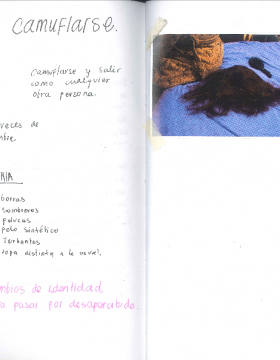 Camuflarse.
camuflarse y salir
como cualquier
otra persona.
veces de
gorras
sombreros
pelucas
pelo sintético
Turbantes
ropa distinta a la usual.
mbios de identidad
a pasar por desaparecida.